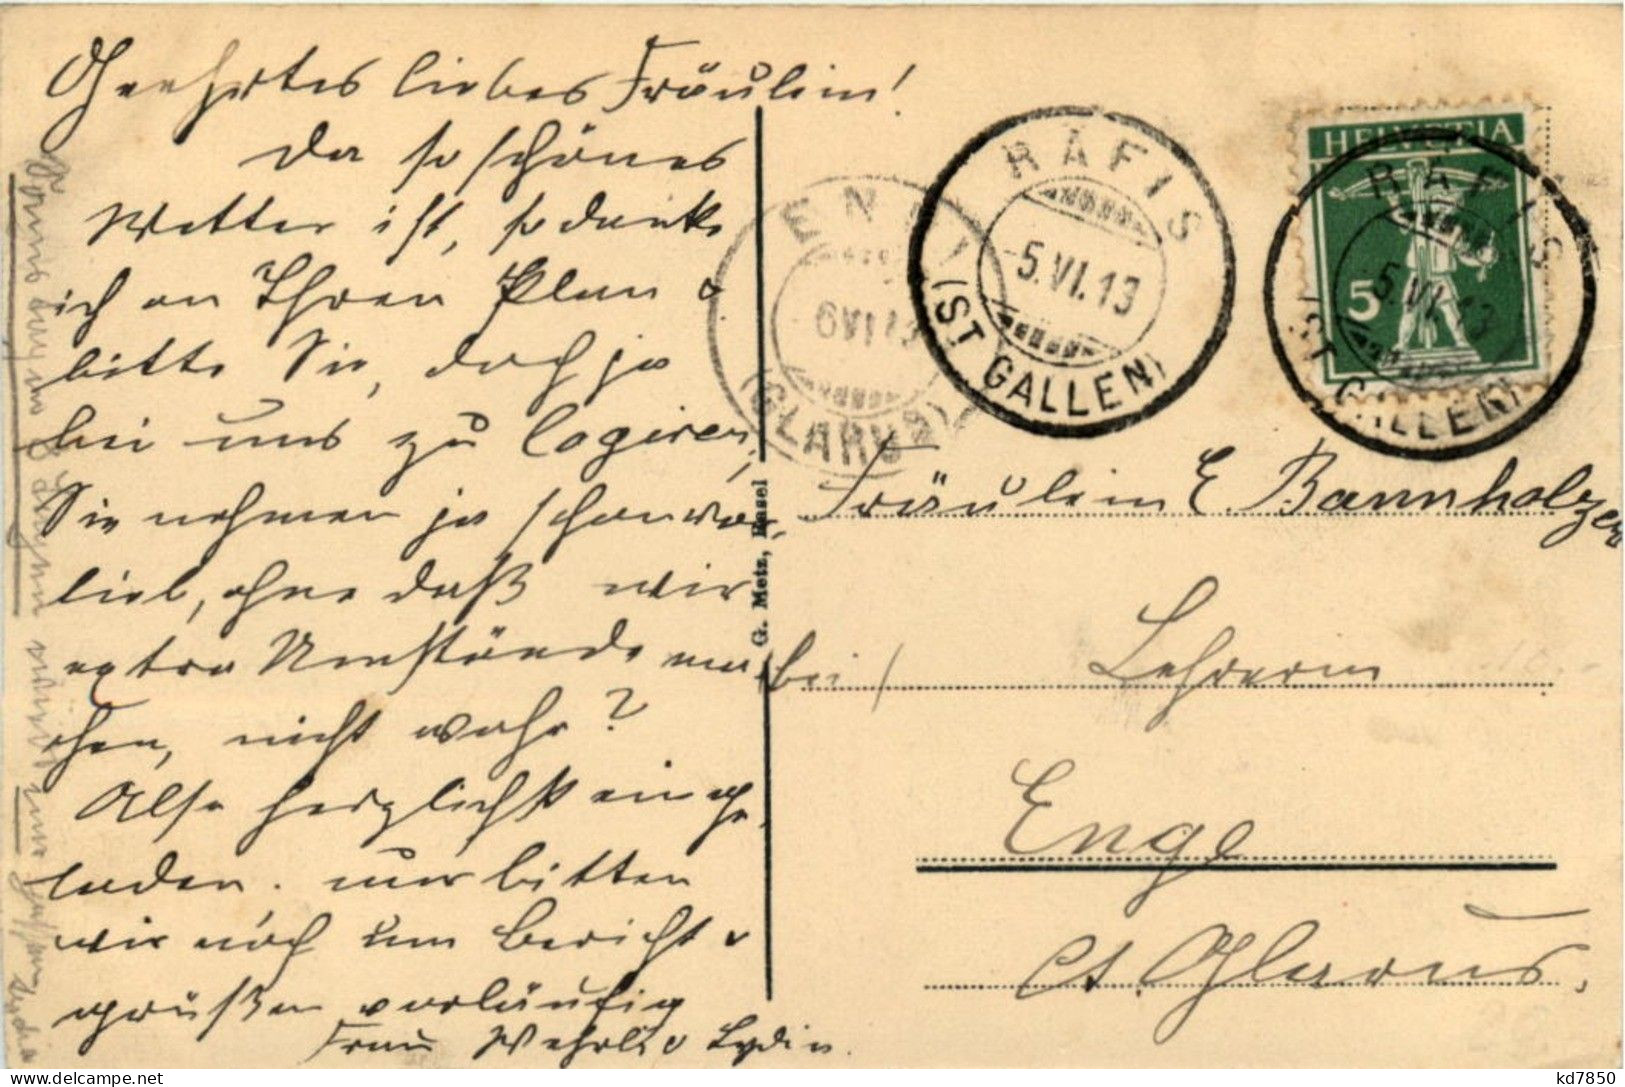 Geehrtes liebes Fräulein!
Da so schönes
Wetter ist, so denke
ich an Ihren Plan &
bitte Sie, doch ja
bei uns zu logieren,
Sie nehmen ja schon vor-
lieb, ohne daß wir
extra Umstände ma-
chen, nicht wahr?
Also herzlichst einge-
laden. nur bitten
wir noch um Bericht &
grüßen vorläufig
Frau Wehrli & Lydia.
G. Metz, Basel
ENGI
6 VI 13
(GLARUS)
RÄFIS
-5.VI.13
(ST GALLEN)
HELVETIA
5
RÄFIS
-5.VI.13
(ST GALLEN)
Fräulein E. Bannholzer
bei / Lehrerin
Enge
Ct. Glarus.
kd7850